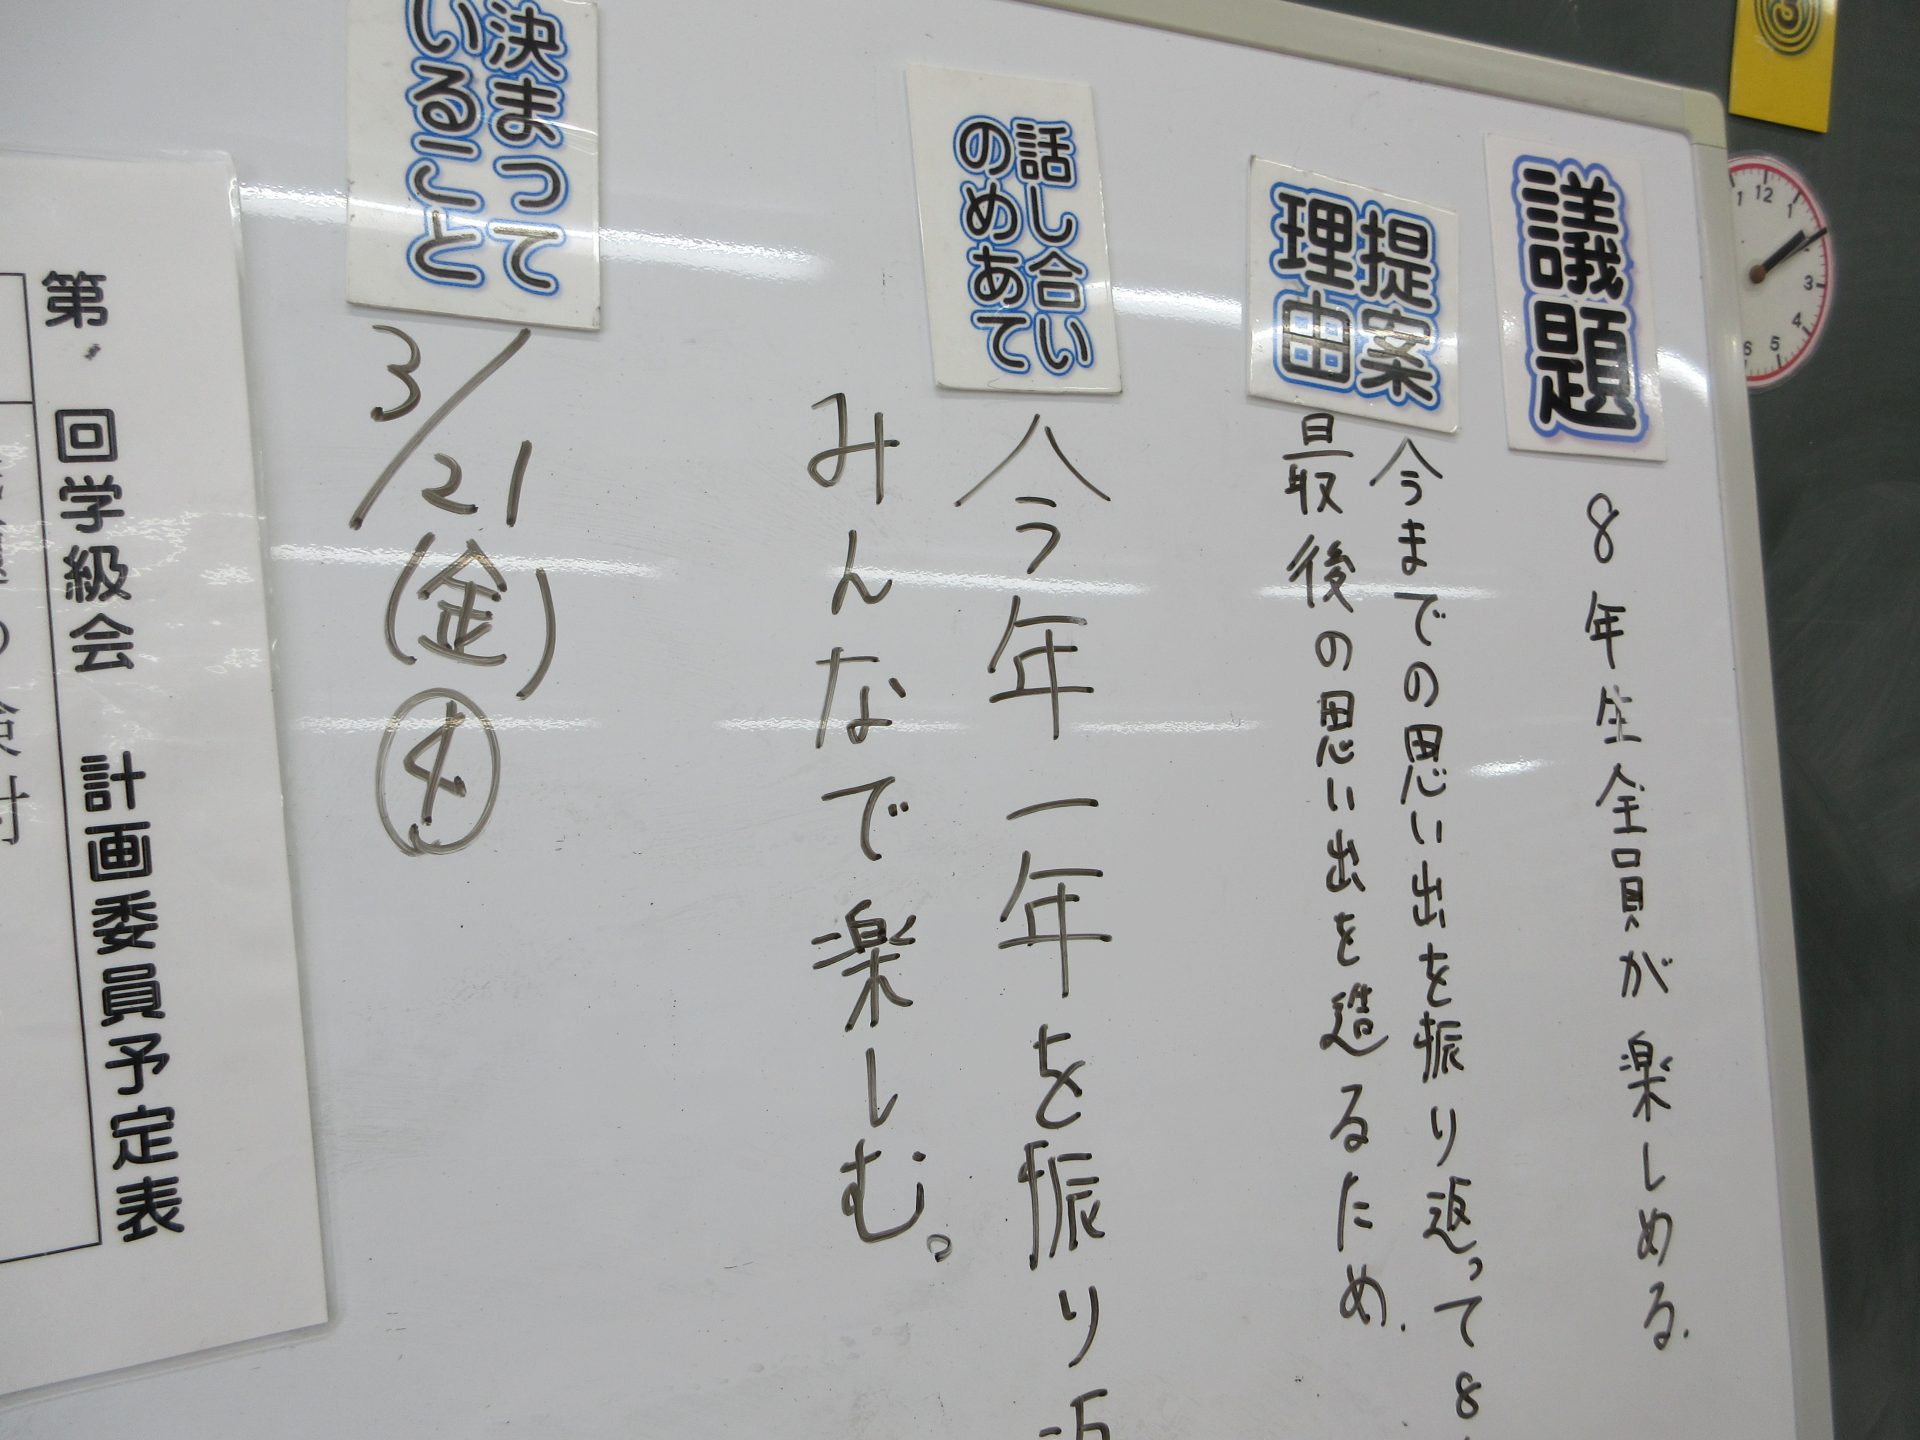 議題
8年生全員が楽しめる.
提案
理由
今までの思い出を振り返って8
最後の思い出を造るため.
話し合い
のめあて
今年一年を振り返
みんなで楽しむ。
決まって
いること
3/21(金)④
第 回学級会 計画委員予定表
12
1
3
4
5
6